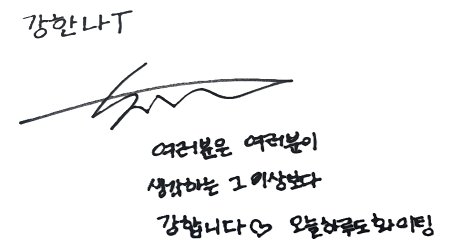 강한나T
여러분은 여러분이
생각하는 그 이상보다
강합니다♡ 오늘하루도 화이팅